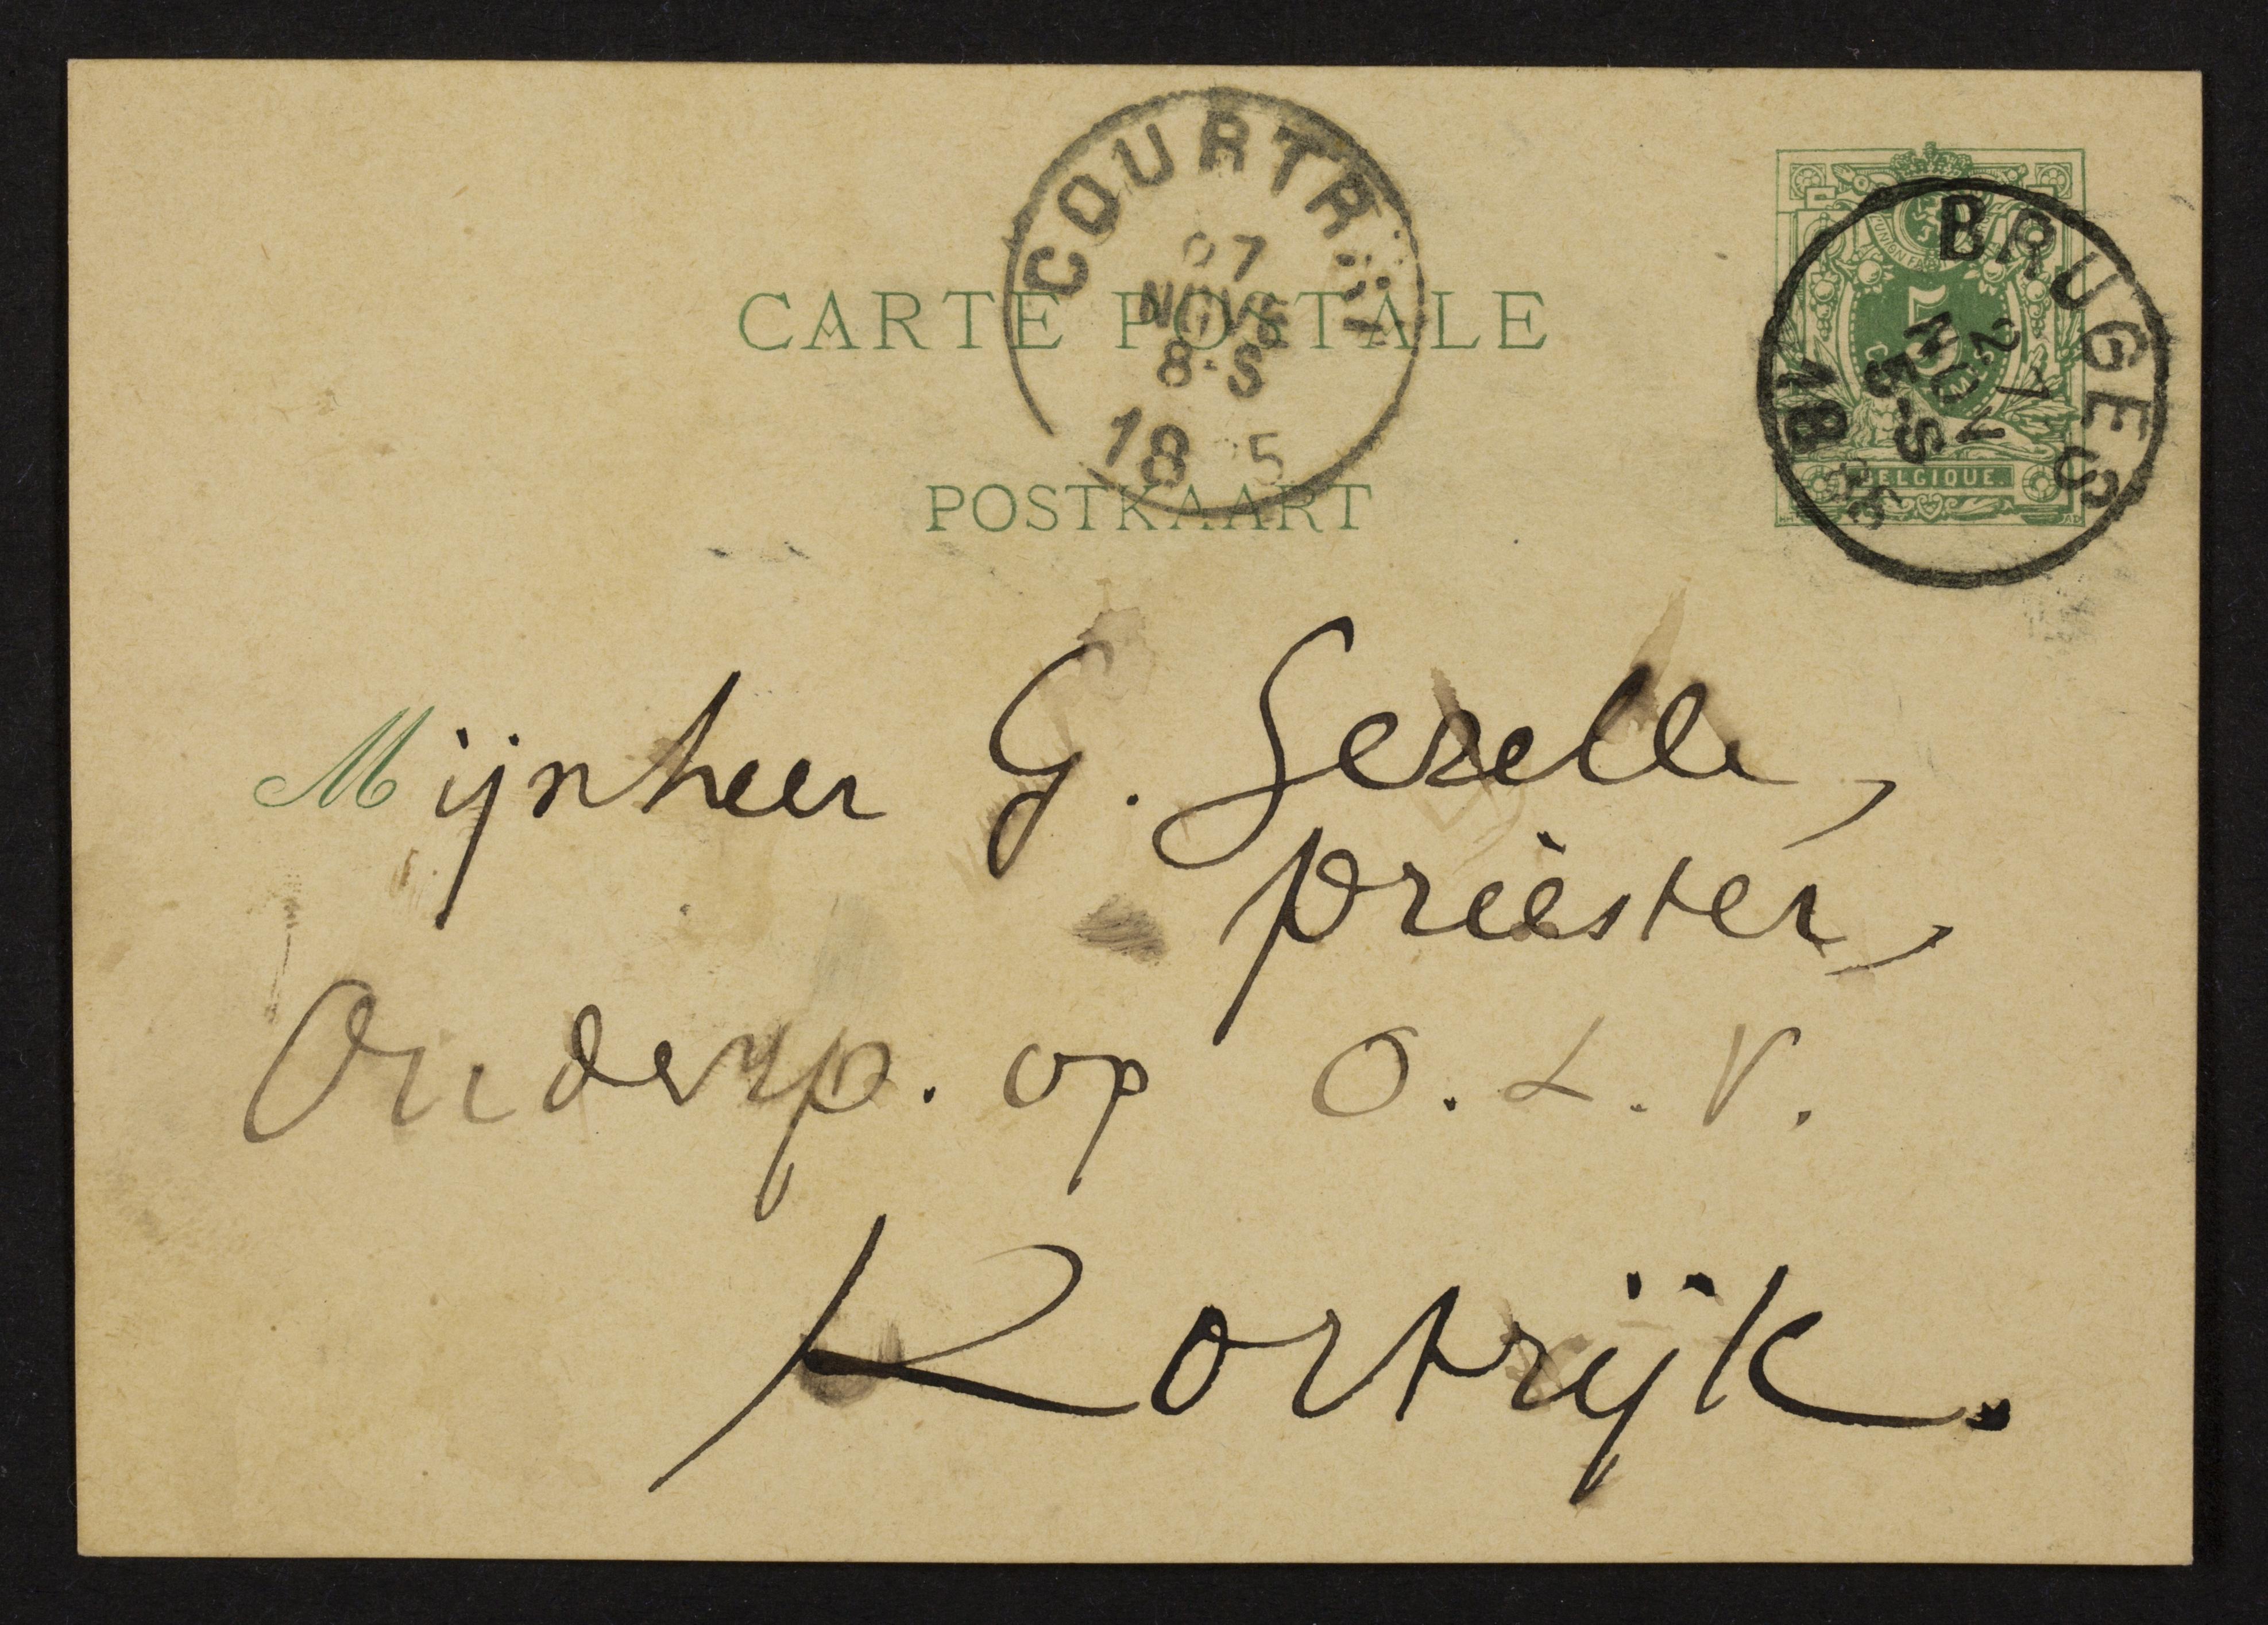 COURTRAI
27
NOV
8-S
18 5
BRUGES
27
NOV
5-S
18
5
BELGIQUE.
CARTE POSTALE
POSTKAART
Mijnheer G. Gezelle,
priester,
Onderp. op O. L. V.
Kortrijk.